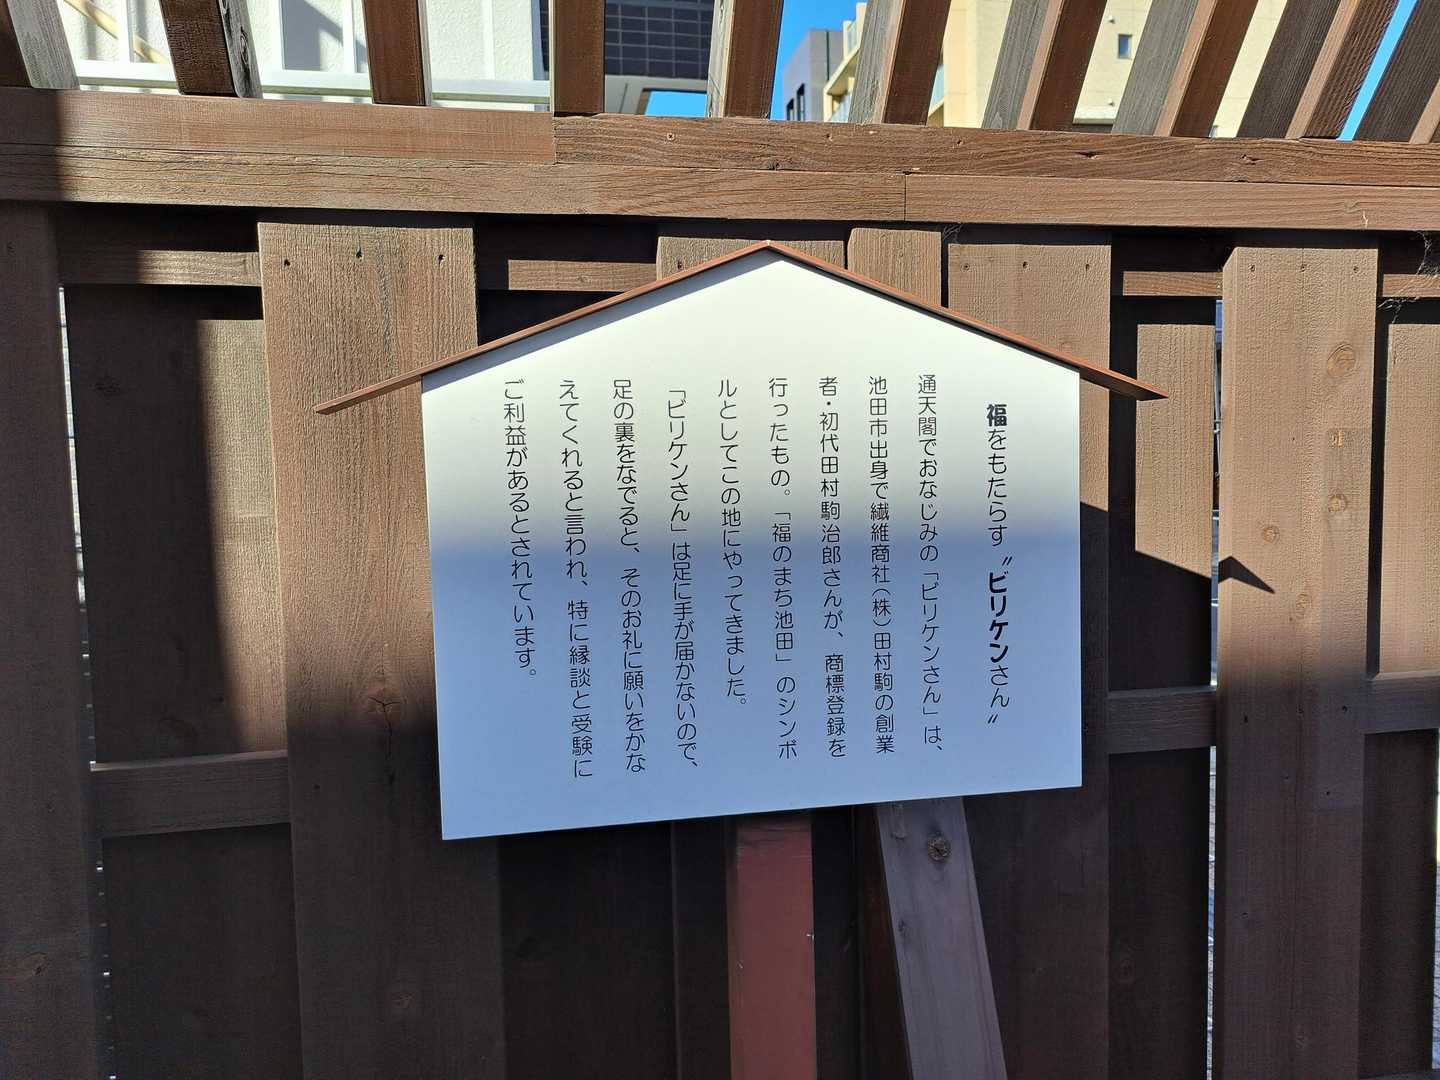 福をもたらす〝ビリケンさん〟
通天閣でおなじみの「ビリケンさん」は、
池田市出身で繊維商社(株)田村駒の創業
者・初代田村駒治郎さんが、商標登録を
行ったもの。「福のまち池田」のシンボ
ルとしてこの地にやってきました。
「ビリケンさん」は足に手が届かないので、
足の裏をなでると、そのお礼に願いをかな
えてくれると言われ、特に縁談と受験に
ご利益があるとされています。